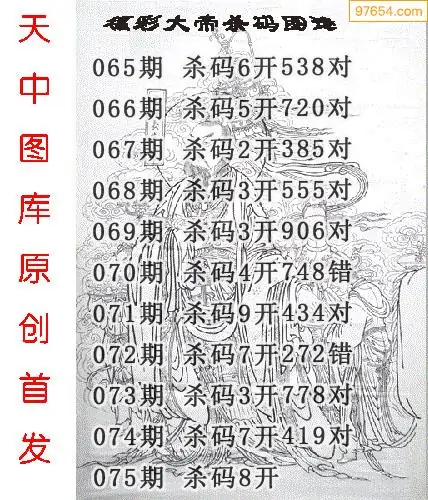 97654.com
福彩大帝杀码图谜
065期 杀码6开538对
066期 杀码5开720对
067期 杀码2开385对
068期 杀码3开555对
069期 杀码3开906对
070期 杀码4开748错
071期 杀码9开434对
072期 杀码7开272错
073期 杀码3开778对
074期 杀码7开419对
075期 杀码8开
天中图库原创首发